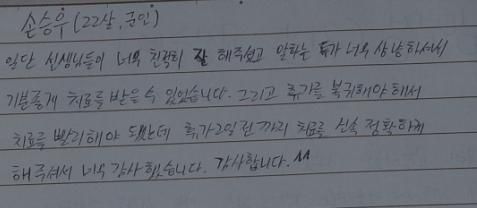 손승우 (22살, 군인)
일단 선생님들이 너무 친절히 잘 해주셨고 말하는 투가 너무 상냥하셔서
기분좋게 치료를 받을 수 있었습니다. 그리고 휴가를 복귀해야 해서
치료를 빨리해야 됐는데 휴가 2일 전까지 치료를 신속 정확하게
해주셔서 너무 감사했습니다. 감사합니다. ^^